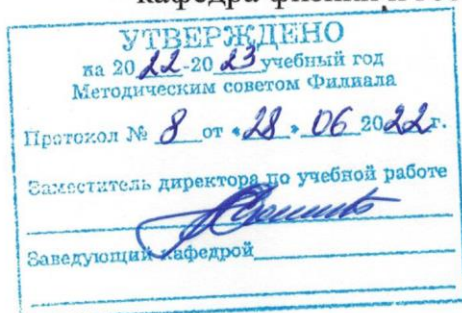 кафедра физики и
УТВЕРЖДЕНО
на 2022-2023 учебный год
Методическим советом Филиала
Протокол № 8 от «28» 06 2022г.
Заместитель директора по учебной работе
Заведующий кафедрой